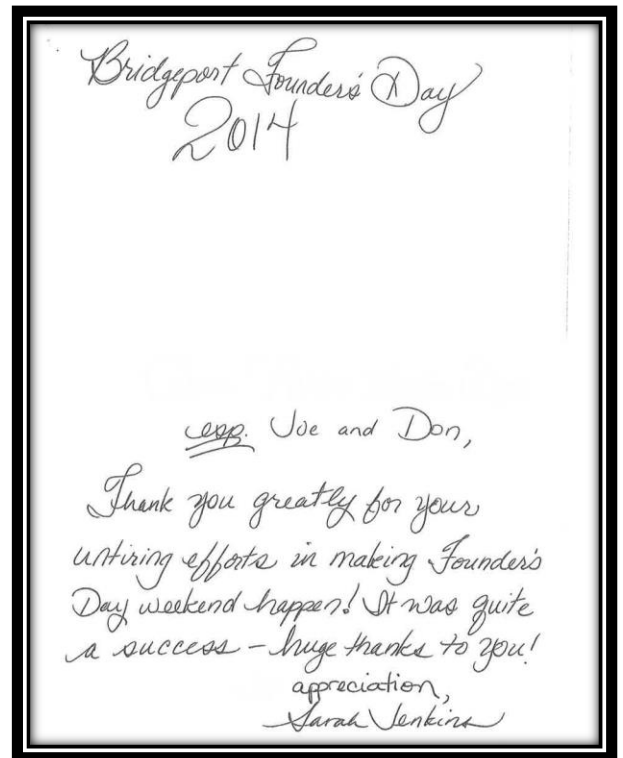 Bridgeport Founder's Day
2014
esp. Joe and Don,
Thank you greatly for your
untiring efforts in making Founder's
Day weekend happen! It was quite
a success – huge thanks to you!
appreciation,
Sarah Jenkins